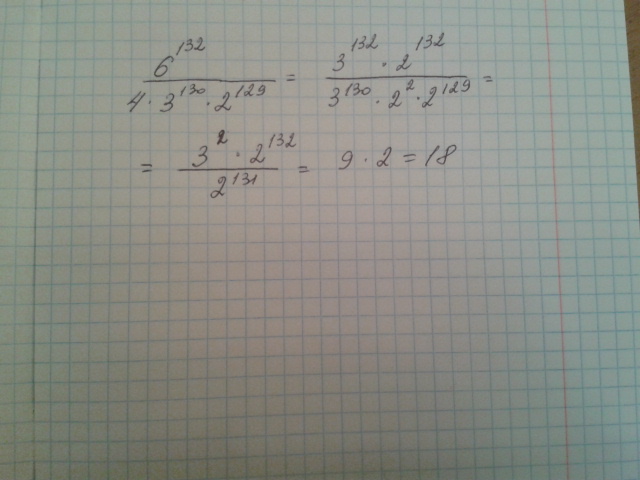 6^132 / 4 · 3^130 · 2^129 = 3^132 · 2^132 / 3^130 · 2^2 · 2^129 =
= 3^2 · 2^132 / 2^131 = 9 · 2 = 18